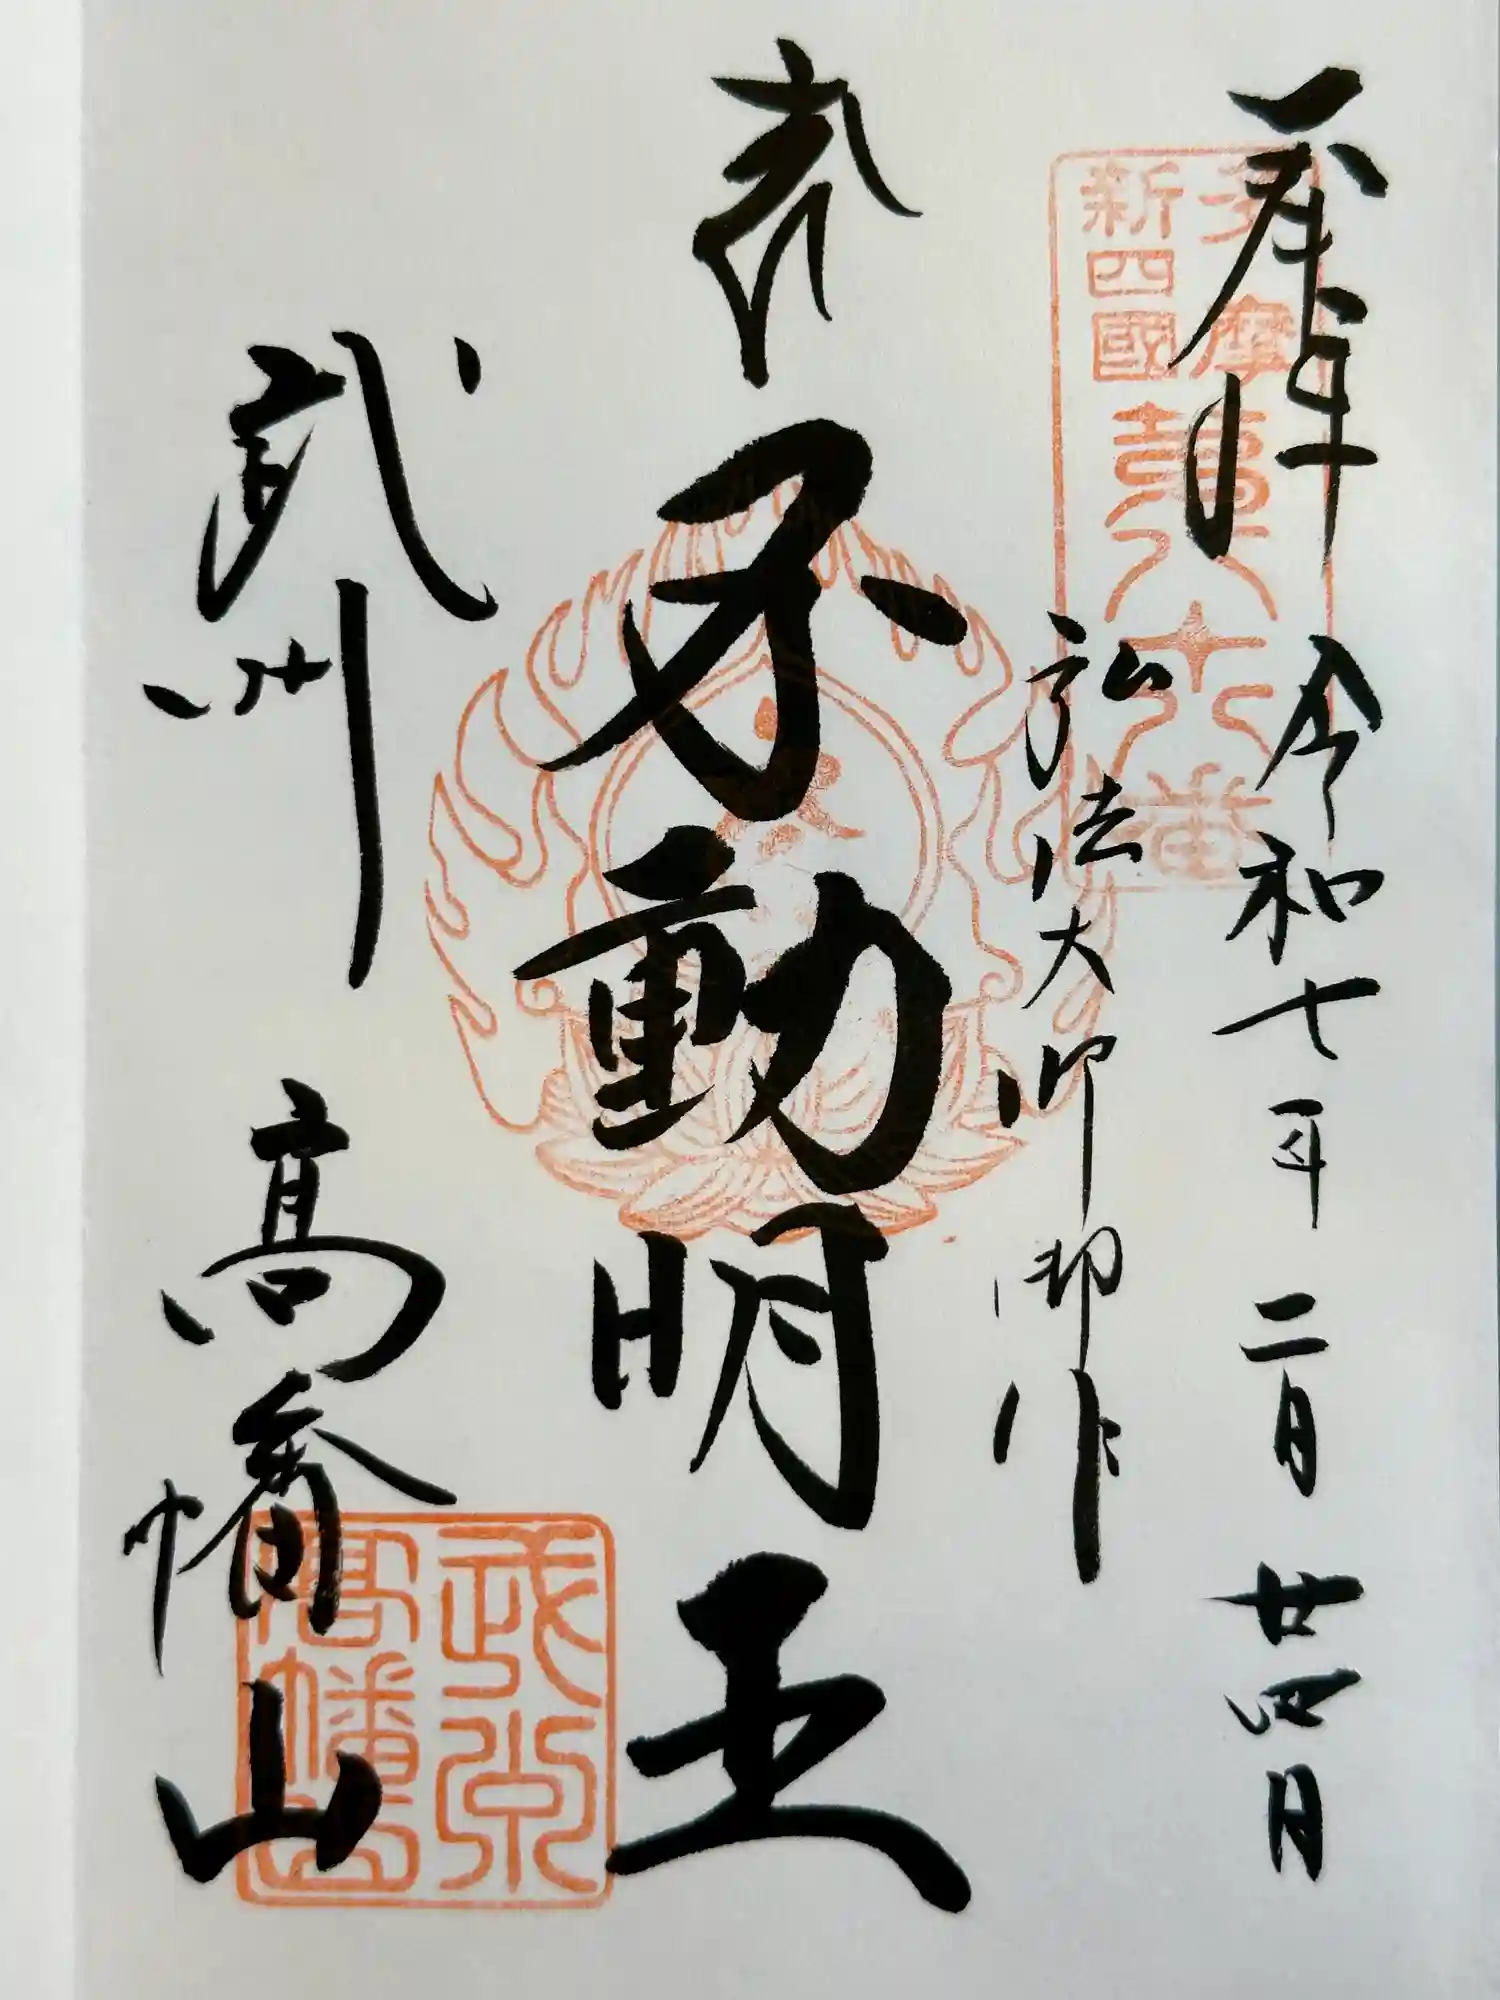 奉拝 令和七年二月廿四日
多摩
新四國
第八十八番
弘法大師御作
不動明王
武州 高幡山
武州
高幡山